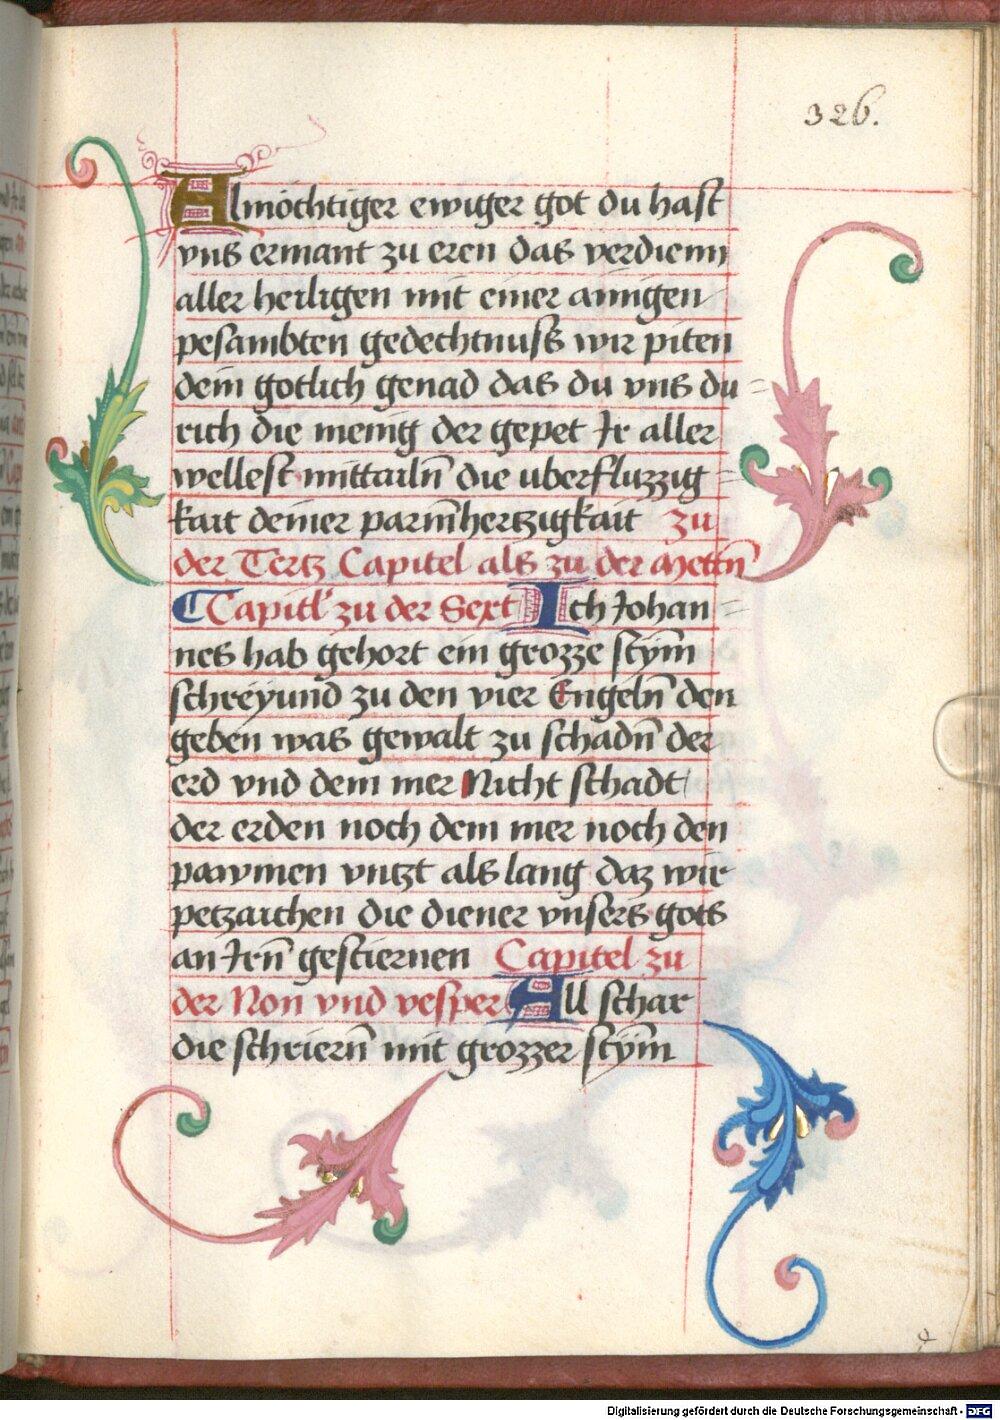 326.
Almöchtiger ewiger got du hast
vns ermant zu eren das verdienn
aller heiligen mit einer ainigen
pesambten gedechtnuß wir piten
dein gotlich genad das du vns du=
rich die menig der gepet Ir aller
wellest mittailn̄ die uberfluzzig=
kait deiner parm̄hertzigkait zu
der Tertz Capitel als zu der Mettn̄
Capitl' zu der Sext Ich Johan=
nes hab gehort ein grozze stym̄
schreyund zu den vier Engeln̄ den
geben was gewalt zu schadn̄ der
erd vnd dem mer Nicht schadt
der erden noch dem mer noch den
pawmen vntzt als lang daz wir
petzaichen die diener vnsers gots
an Irn̄ gestiernen Capitel zu
der Non vnd vesper All schar
die schriern̄ mit grozzer stym̄
Digitalisierung gefördert durch die Deutsche Forschungsgemeinschaft - DFG